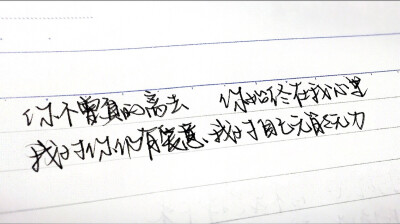 你不曾真的离去 你始终在我心里
我对你仍有爱意 我对自己无能为力